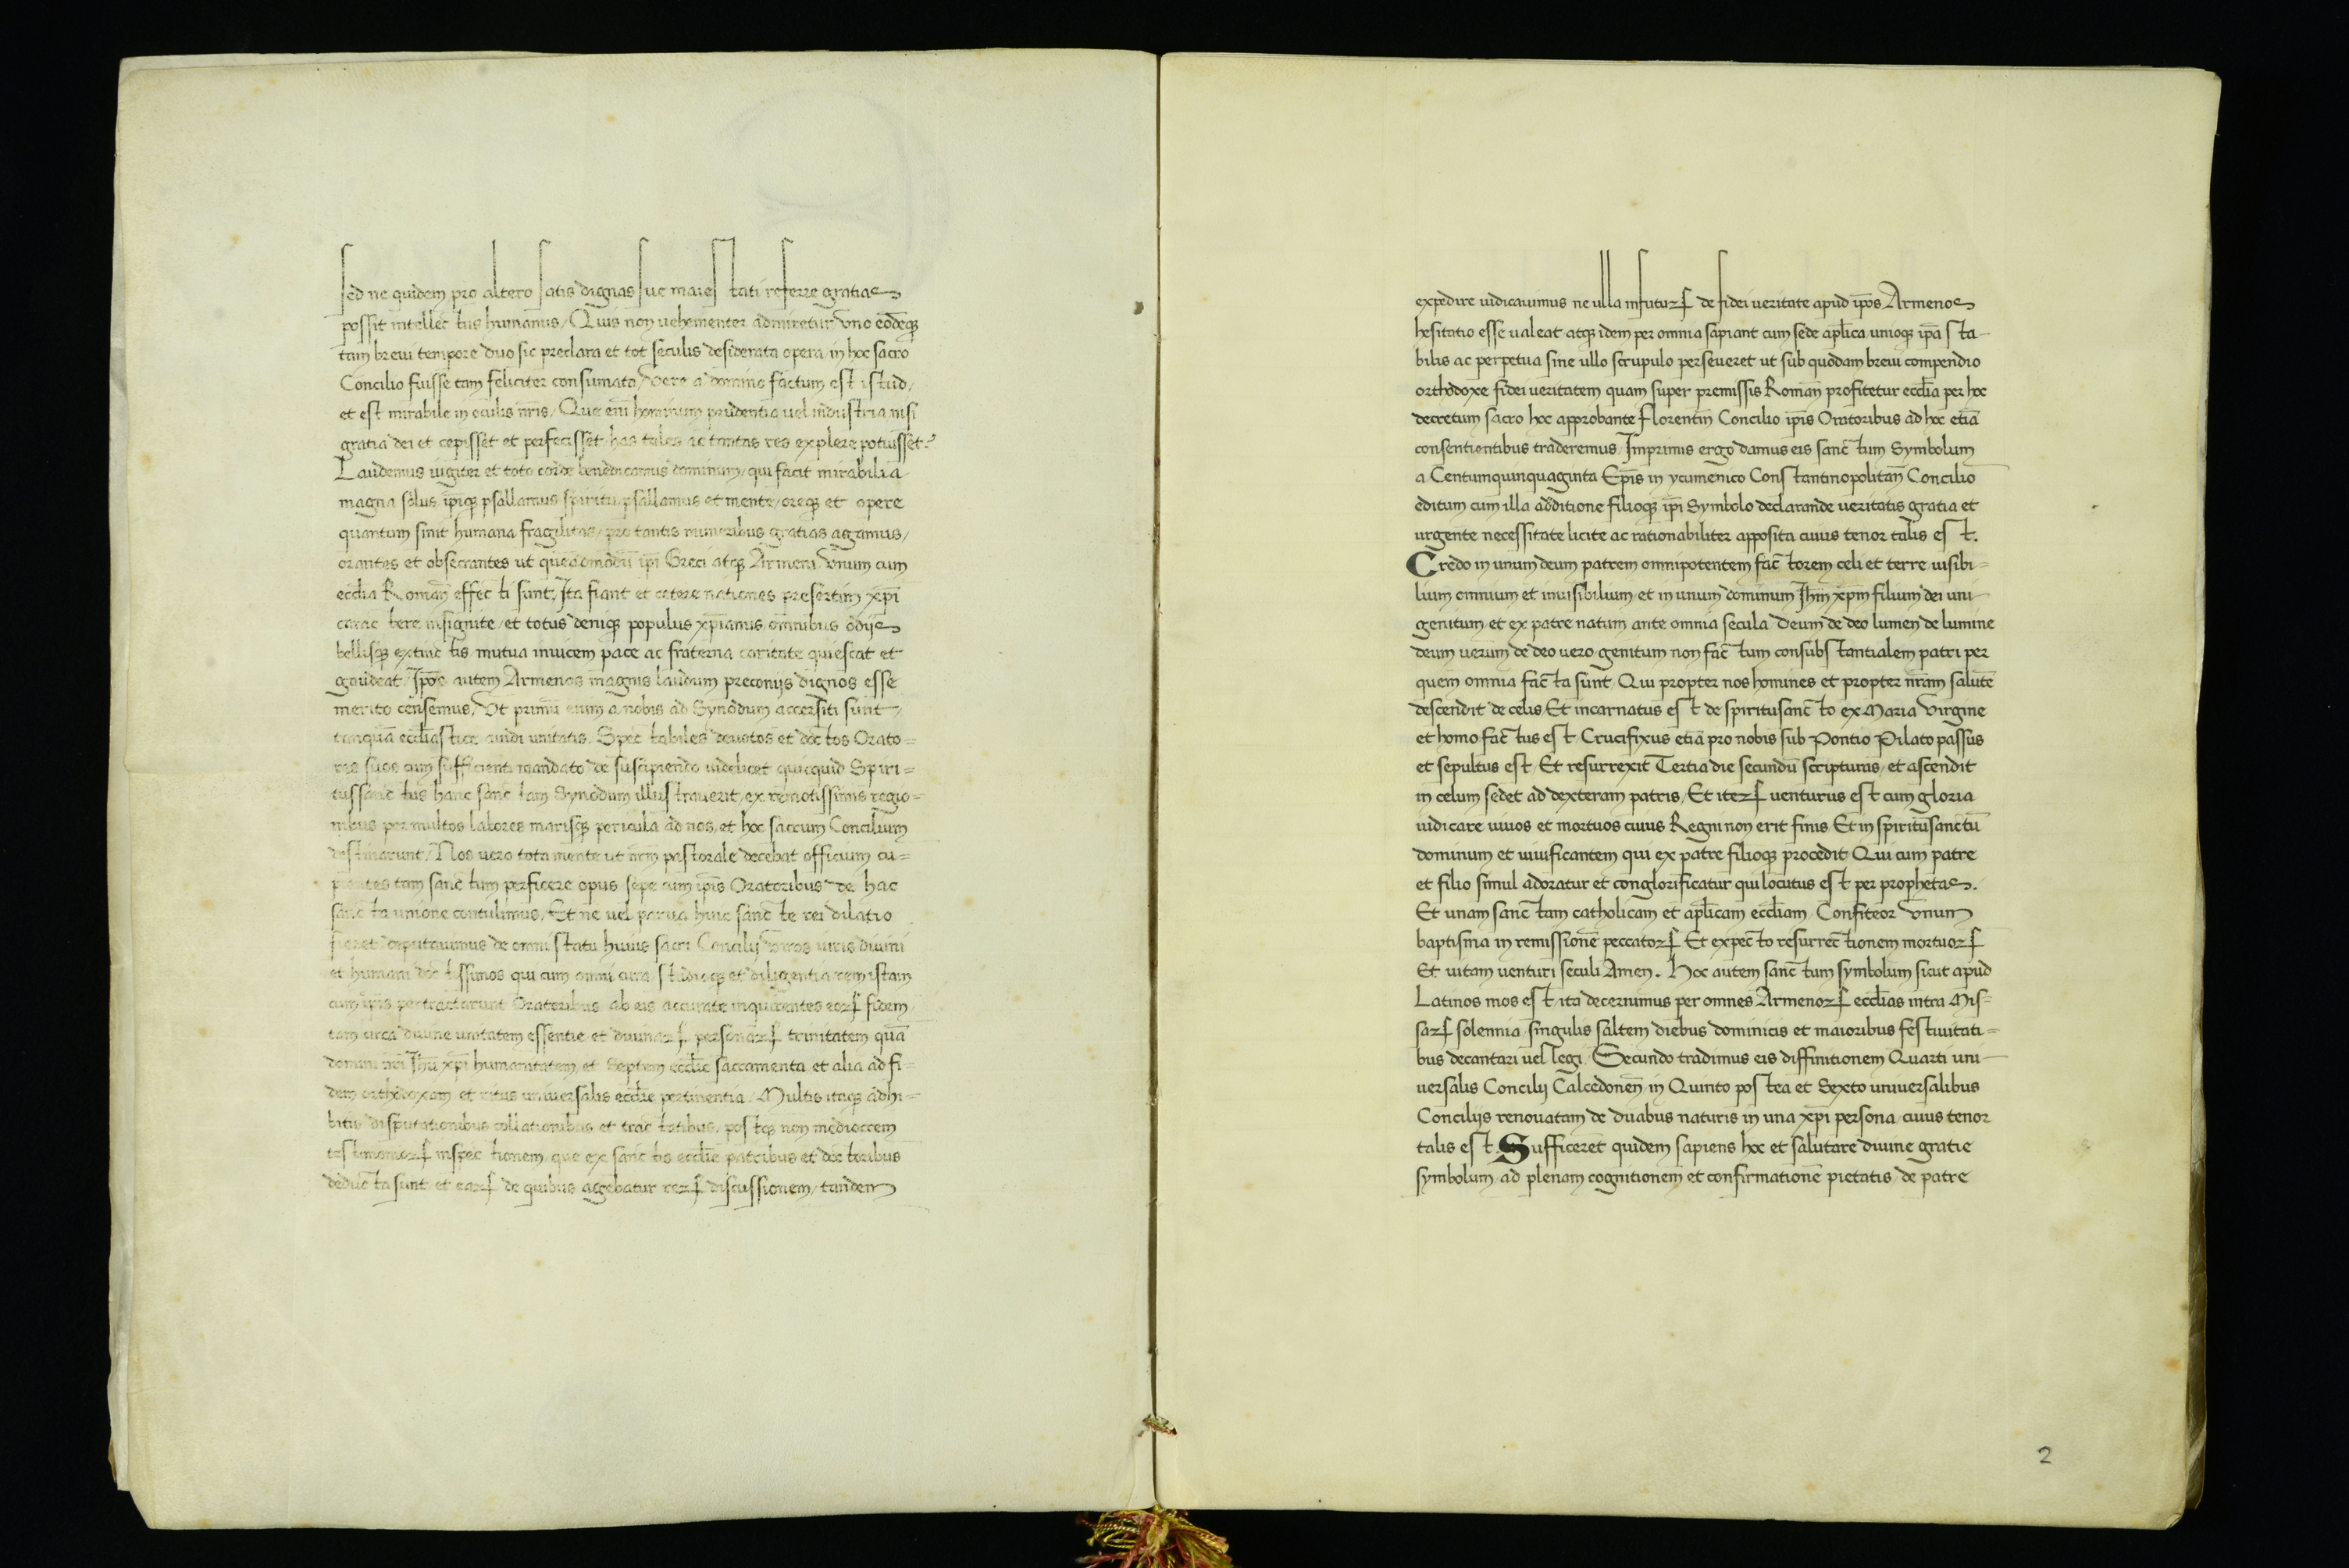 sed ne quidem pro altero satis dignas sue maiestati referre gratias
possit intellectus humanus / Quis non uehementer admiretur vno eodeqȝ
tam breui tempore duo sic preclara et tot seculis desiderata opera in hoc sacro
Concilio fuisse tam feliciter consumata / Vere a domino factum est istud /
et est mirabile in oculis nr̄is / Que eni̅ hominum prudentia uel industria nisi
gratia dei et cepisset et perfecisset has tales ac tantas res explere potuisset?
Laudemus iugiter et toto corde benedicamus dominum / qui facit mirabilia
magna solus ip̄iqȝ psallamus spiritu psallamus et mente / oreqȝ et opere
quantum sinit humana fragilitas / pro tantis muneribus gratias agamus /
orantes et obsecrantes ut queadmodu̅ ip̄i Greci atqȝ Armeni vnum cum
eccl̄ia Roman̄ effecti sunt. Ita fiant et cetere nationes presertim xp̄i
caractere insignite / et totus deniqȝ populus xp̄ianus omnibus odijs
bellisqȝ extinctis mutua inuicem pace ac fraterna caritate quiescat et
gaudeat / Ip̄os autem Armenos magnis laudum preconijs dignos esse
merito censemus / Vt primu̅ enim a nobis ad Synodum accersiti sunt /
tanqua̅ eccl̄iastice auidi unitatis. Spectabiles deuotos et doctos Orato=
res suos cum sufficienti mandato de suscipiendo uidelicet quicquid Spiri=
tussanctus hanc sanctam Synodum illustrauerit / ex remotissimis regio=
nibus per multos labores marisqȝ pericula ad nos / et hoc sacrum Concilium
destinarunt / Nos uero tota mente ut nr̄m pastorale decebat officium cu=
pientes tam sanctum perficere opus sepe cum ip̄is Oratoribus de hac
sancta unione contulimus / Et ne uel parua huic sancte rei dilatio
fieret deputauimus de omni statu huius sacri Concilij viros iuris diuini
et humani doctissimos qui cum omni cura studioqȝ et diligentia rem istam
cum ip̄is pertractarunt Oratoribus ab eis accurate inquirentes eorꝝ fidem
tam circa diuine unitatem essentie et diuinarꝝ personarꝝ trinitatem qua̅
domini nr̄i Ihū xp̄i humanitatem et Septem eccl̄ie sacramenta et alia ad fi=
dem orthodoxam et ritus uniuersalis eccl̄ie pertinentia / Multis itaqȝ adhi=
bitis disputationibus collationibus et tractatibus, postqȝ non mediocrem
testimoniorꝝ inspectionem que ex sanctis eccl̄ie patribus et doctoribus
deducta sunt et earꝝ de quibus agebatur rerꝝ discussionem / tandem
expedire iudicauimus ne ulla in futurꝝ de fidei ueritate apud ip̄os Armenos
hesitatio esse ualeat atqȝ idem per omnia sapiant cum sede apl̄ica unioqȝ ip̄a sta-
bilis ac perpetua sine ullo scrupulo perseueret ut sub quodam breui compendio
orthodoxe fidei ueritatem quam super premissis Roman̄ profitetur eccl̄ia per hoc
decretum sacro hoc approbante florentin̄ Concilio ip̄is Oratoribus ad hoc etia̅
consentientibus traderemus / Imprimis ergo damus eis sanctum Symbolum
a Centumquinquaginta Ep̄is in ycumenico Constantinopolitan̄ Concilio
editum cum illa additione filioqȝ ip̄i Symbolo declarande ueritatis gratia et
urgente necessitate licite ac rationabiliter apposita cuius tenor talis est.
Credo in unum deum patrem omnipotentem factorem celi et terre uisibi=
lium omnium et inuisibilium / et in unum dominum Ihm̄ xp̄m filium dei uni-
genitum / et ex patre natum ante omnia secula Deum de deo lumen de lumine
deum uerum de deo uero / genitum non factum consubstantialem patri per
quem omnia facta sunt / Qui propter nos homines et propter nr̄am salute̅
descendit de celis Et incarnatus est de spiritusancto ex Maria Virgine
et homo factus est / Crucifixus etia̅ pro nobis sub Pontio Pilato passus
et sepultus est / Et resurrexit Tertia die secundu̅ scripturas / et ascendit
in celum sedet ad dexteram patris / Et iterꝝ uenturus est cum gloria
iudicare uiuos et mortuos cuius Regni non erit finis Et in spiritusanctu̅
dominum et uiuificantem qui ex patre filioqȝ procedit / Qui cum patre
et filio simul adoratur et conglorificatur qui locutus est per prophetas.
Et unam sanctam catholicam et apl̄icam eccl̄iam / Confiteor vnum
baptisma in remissione̅ peccatorꝝ Et expecto resurrectionem mortuorꝝ
Et uitam uenturi seculi Amen. Hoc autem sanctum symbolum sicut apud
Latinos mos est / ita decernimus per omnes Armenorꝝ eccl̄ias intra Mis=
sarꝝ solennia singulis saltem diebus dominicis et maioribus festiuitati=
bus decantari uel legi. Secundo tradimus eis diffinitionem Quarti uni-
uersalis Concilij Calcedonen̄ in Quinto postea et Sexto uniuersalibus
Concilijs renouatam de duabus naturis in una xp̄i persona / cuius tenor
talis est. Sufficeret quidem sapiens hoc et salutare diuine gratie
symbolum / ad plenam cognitionem et confirmatione̅ pietatis / de patre
2